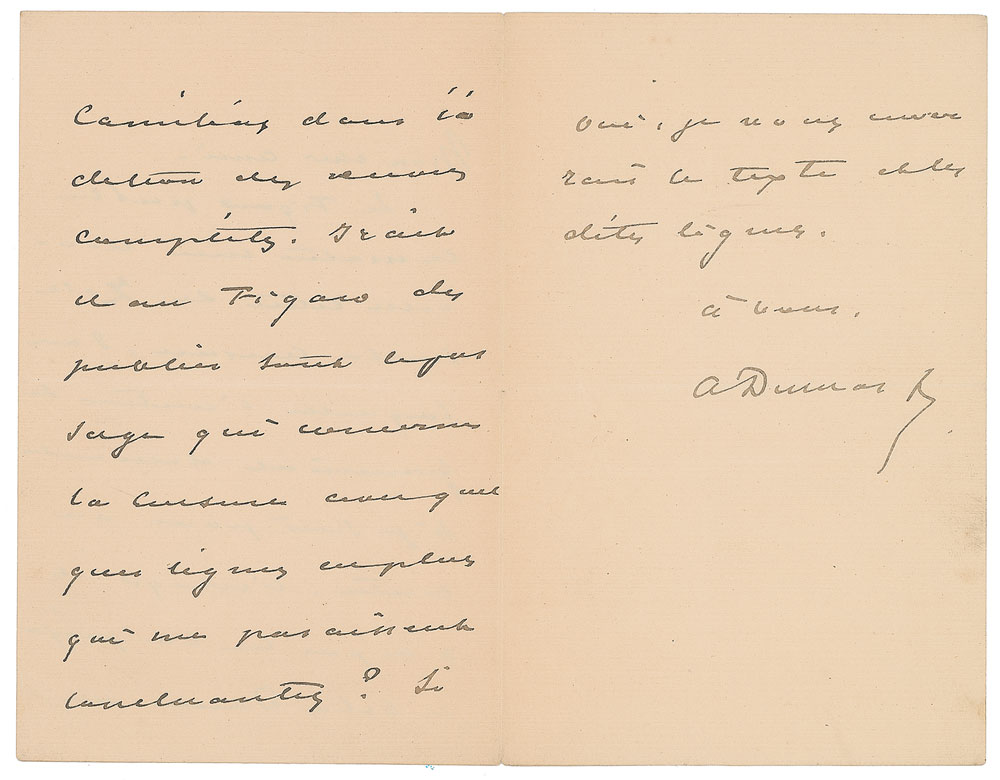 Camélias dans l'é
dition des œuvres
complètes. Irait
il au Figaro de
publier tout le pas
sage qui concerne
la censure avec quel
ques lignes en plus
qui me paraissent
concluantes ? Si
oui, je vous enver
rais le texte et les
dites lignes.
à vous.
A Dumas f